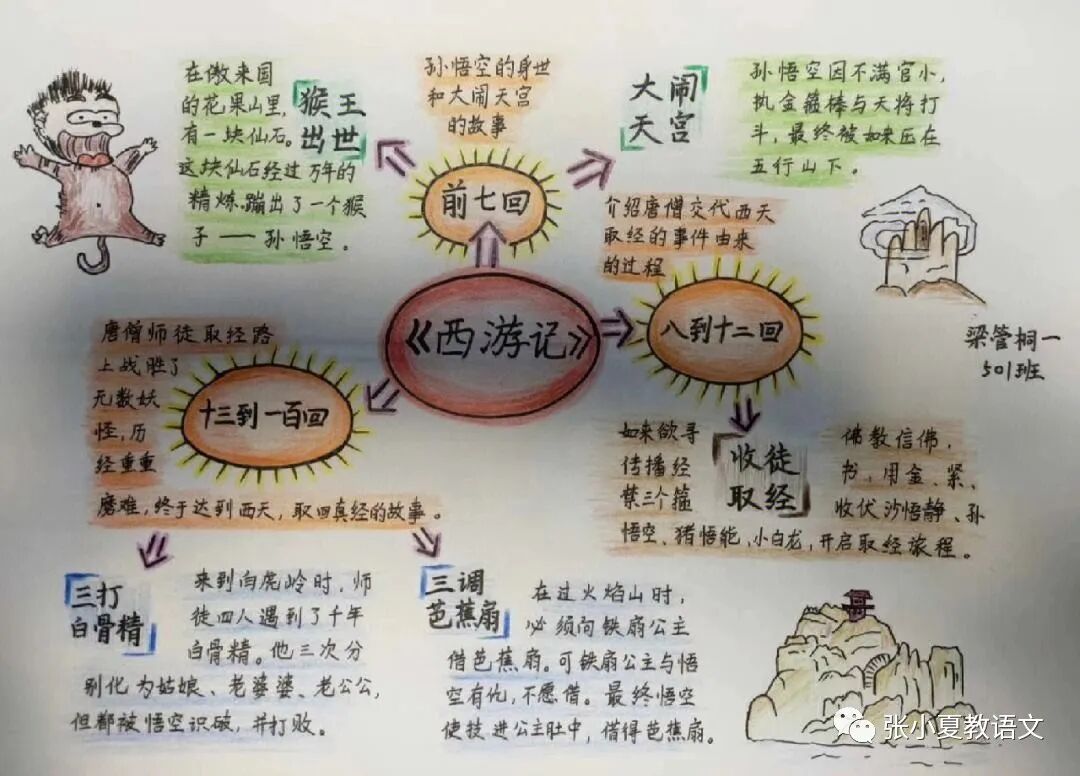 《西游记》
前七回
孙悟空的身世
和大闹天宫
的故事
猴王
出世
在傲来国
的花果山里,
有一块仙石。
这块仙石经过万年的
精炼,蹦出了一个猴
子——孙悟空。
大闹
天宫
孙悟空因不满官小,
执金箍棒与天将打
斗,最终被如来压在
五行山下。
八到十二回
介绍唐僧交代西天
取经的事件由来
的过程
收徒
取经
如来欲寻 佛教信佛,
传播经 书,用金、紧、
禁三个箍 收伏沙悟静、孙
悟空、猪悟能,小白龙,开启取经旅程。
梁管桐一
501班
十三到一百回
唐僧师徒取经路
上战胜了
无数妖
怪,历
经重重
磨难,终于达到西天,取回真经的故事。
三打
白骨精
来到白虎岭时,师
徒四人遇到了千年
白骨精。他三次分
别化为姑娘、老婆婆、老公公,
但都被悟空识破,并打败。
三调
芭蕉扇
在过火焰山时,
必须向铁扇公主
借芭蕉扇。可铁扇公主与悟
空有仇,不愿借。最终悟空
使技进公主肚中,借得芭蕉扇。
张小夏教语文